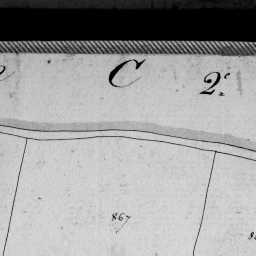 C 2e
867